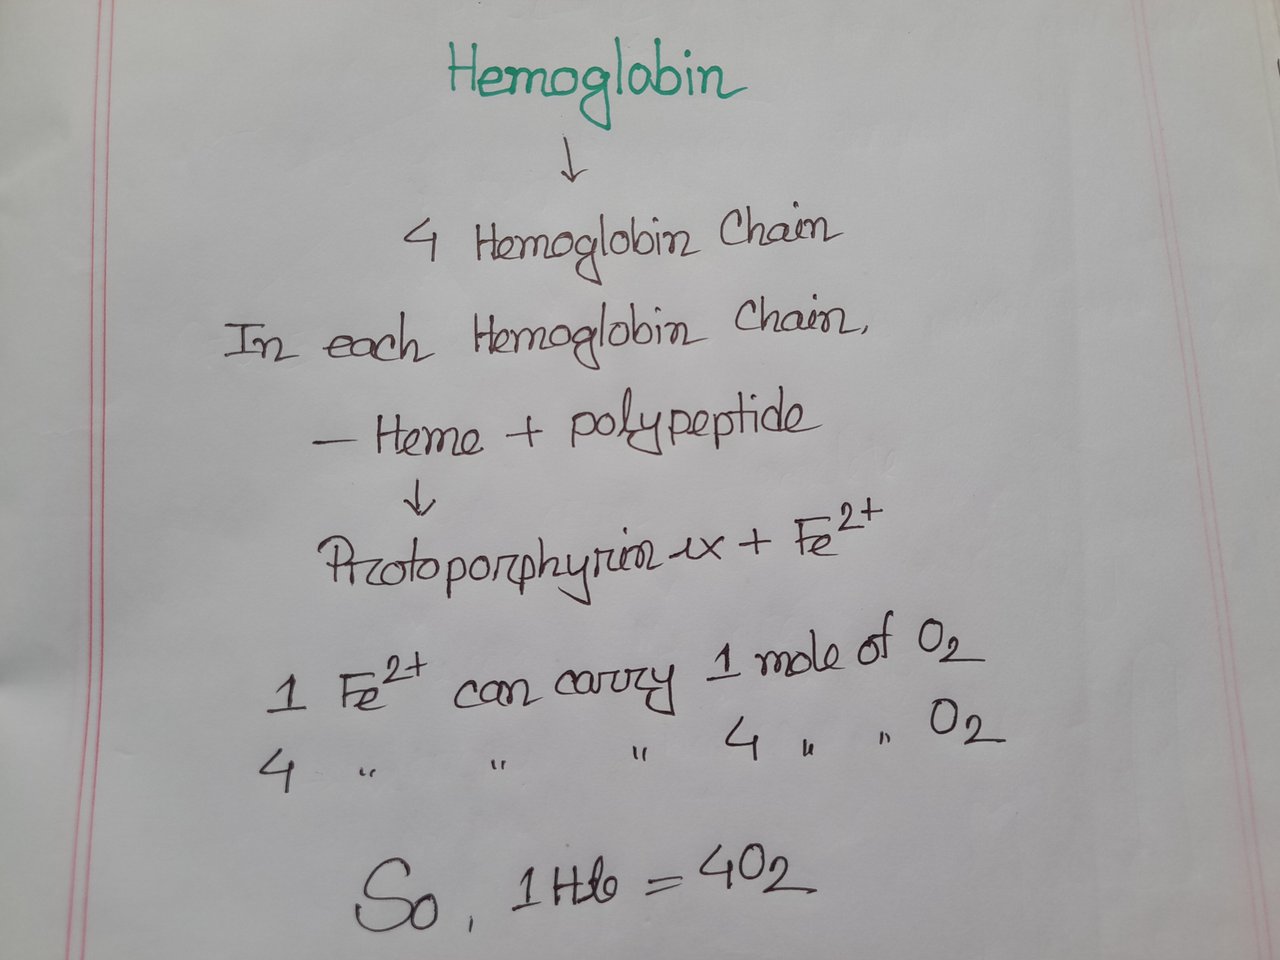 Hemoglobin
↓
4 Hemoglobin Chain
In each Hemoglobin Chain,
— Heme + polypeptide
↓
Protoporphyrin IX + Fe²⁺
1 Fe²⁺ can carry 1 mole of O₂
4 " " " 4 " " O₂
So, 1 Hb = 4O₂